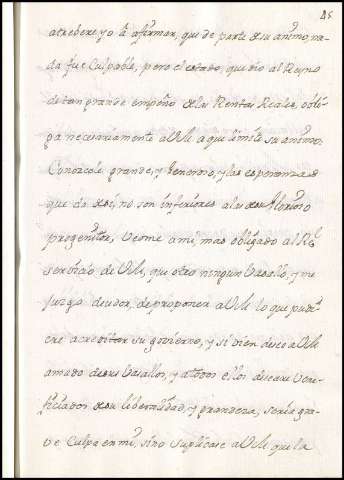 85
atrebere yo á afirmar, que de parte de su animo, na-
da fue Culpable, pero el estado, que dio al Reyno
de tan grande empeño de las Rentas Reales, obli-
ga necesariamente a VM a que limite su animo,
Conozcole grande, y Generoso, y las esperanzas
que da de sí, no son inferiores a las de su Glorioso
progenitor, Veome a mi, mas obligado al Rl
servicio de VM, que otro ningun Vasallo, y me
juzgo deudor, de proponer a VM lo que pudi-
ere acreditar su govierno, y si bien deseo a VM
amado de sus Vasallos, y a todos ellos deseare Vene-
ficiados de su liberalidad, y grandeza, seria gra-
ve Culpa en mi, sino Suplicase a VM que la